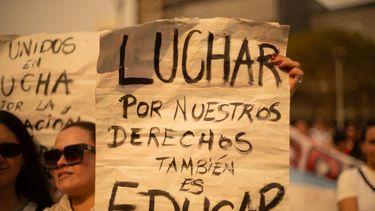 UNIDOS
EN
LUCHA
POR LA
LUCHAR
POR NUESTROS
DERECHOS
TAMBIÉN
ES
EDUCAR